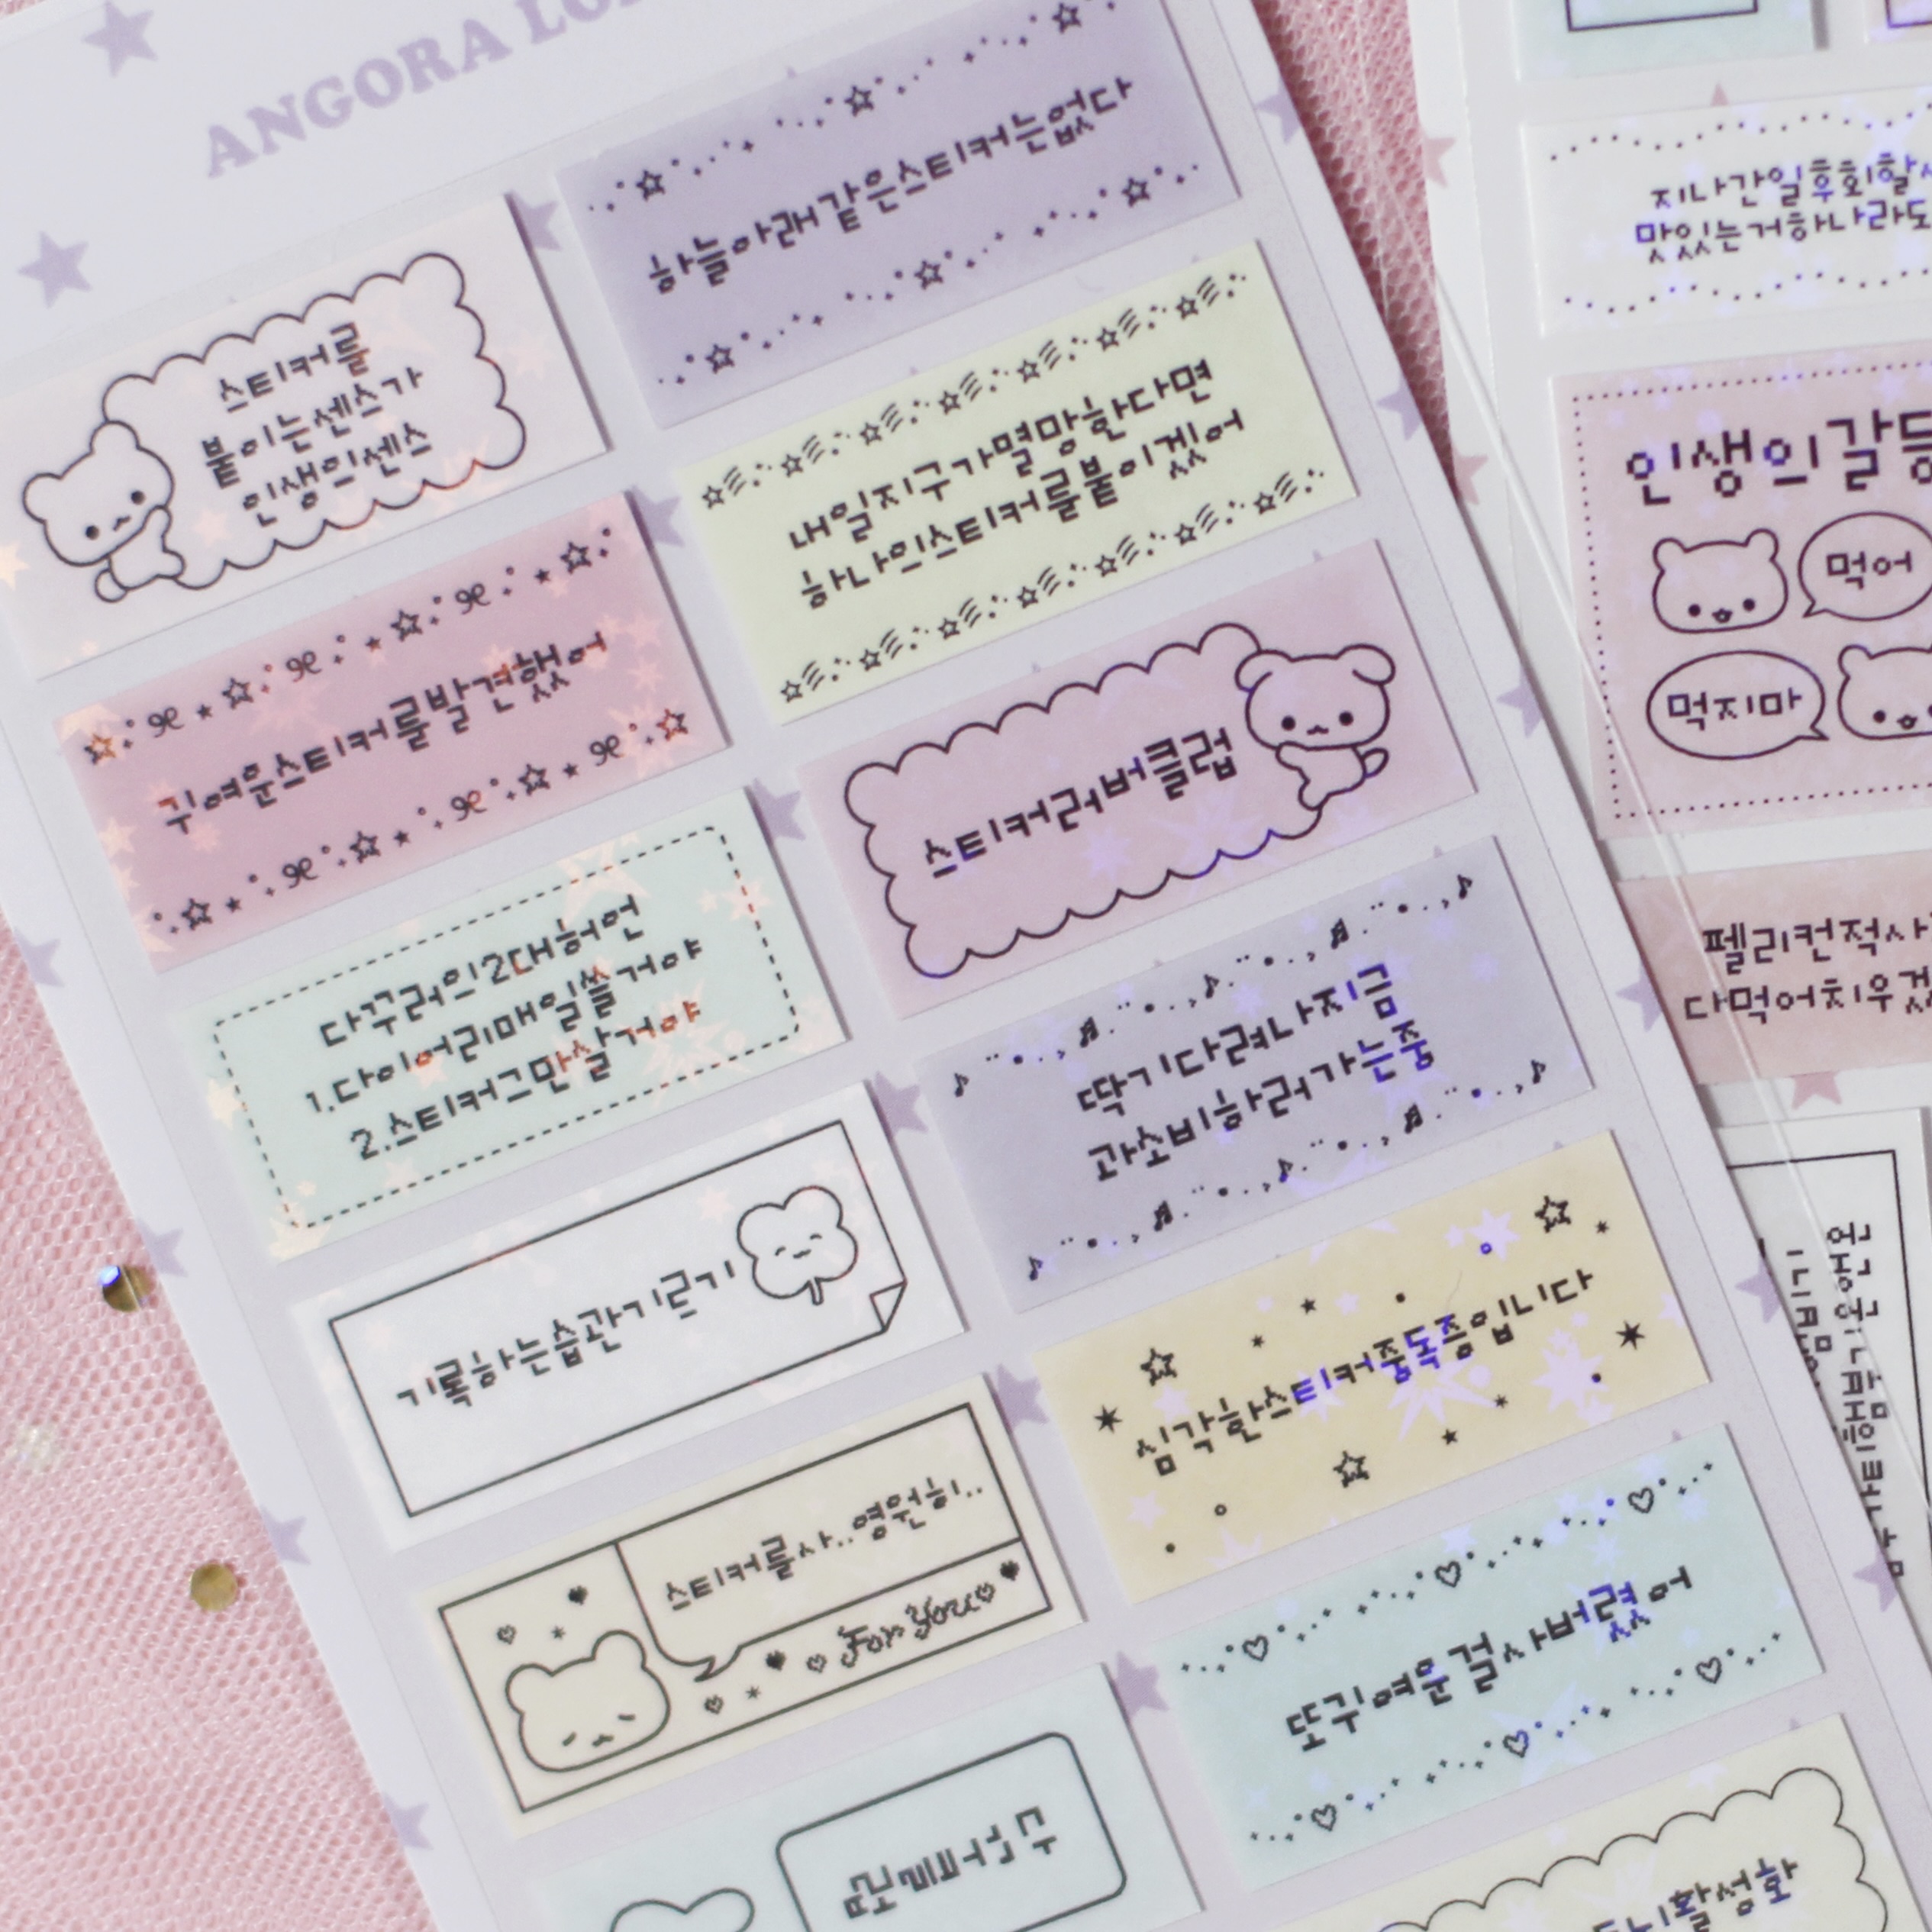 ANGORA
스티커를
붙이는센스가
인생의센스
하늘아래같은스티커는없다
귀여운스티커를발견했어
내일지구가멸망한다면
하나의스티커를붙이겠어
다꾸러의2대허언
1.다이어리매일쓸거야
2.스티커그만살거야
스티커러버클럽
기록하는습관기르기
딱기다려나지금
과소비하러가는중
스티커를사..영원히..
For You
심각한스티커중독증입니다
또귀여운걸사버렸어
지나간일후회할
맛있는거하나라도
인생의갈등
먹어
먹지마
펠리컨적사
다먹어치우겠